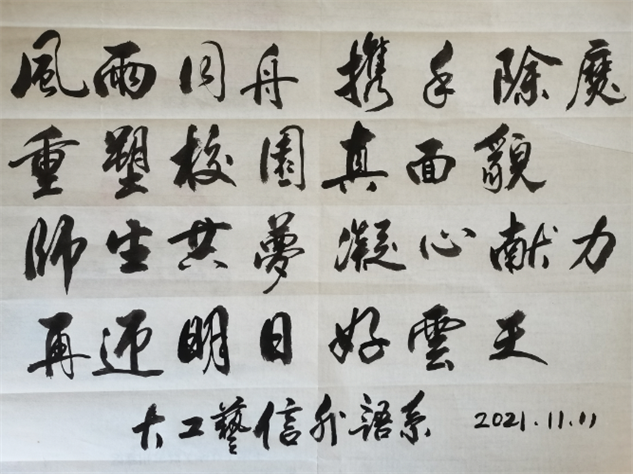 風雨同舟 携手除魔
重塑校園真面貌
師生共夢 凝心献力
再迎明日好雲天
大工藝信外語系 2021.11.11